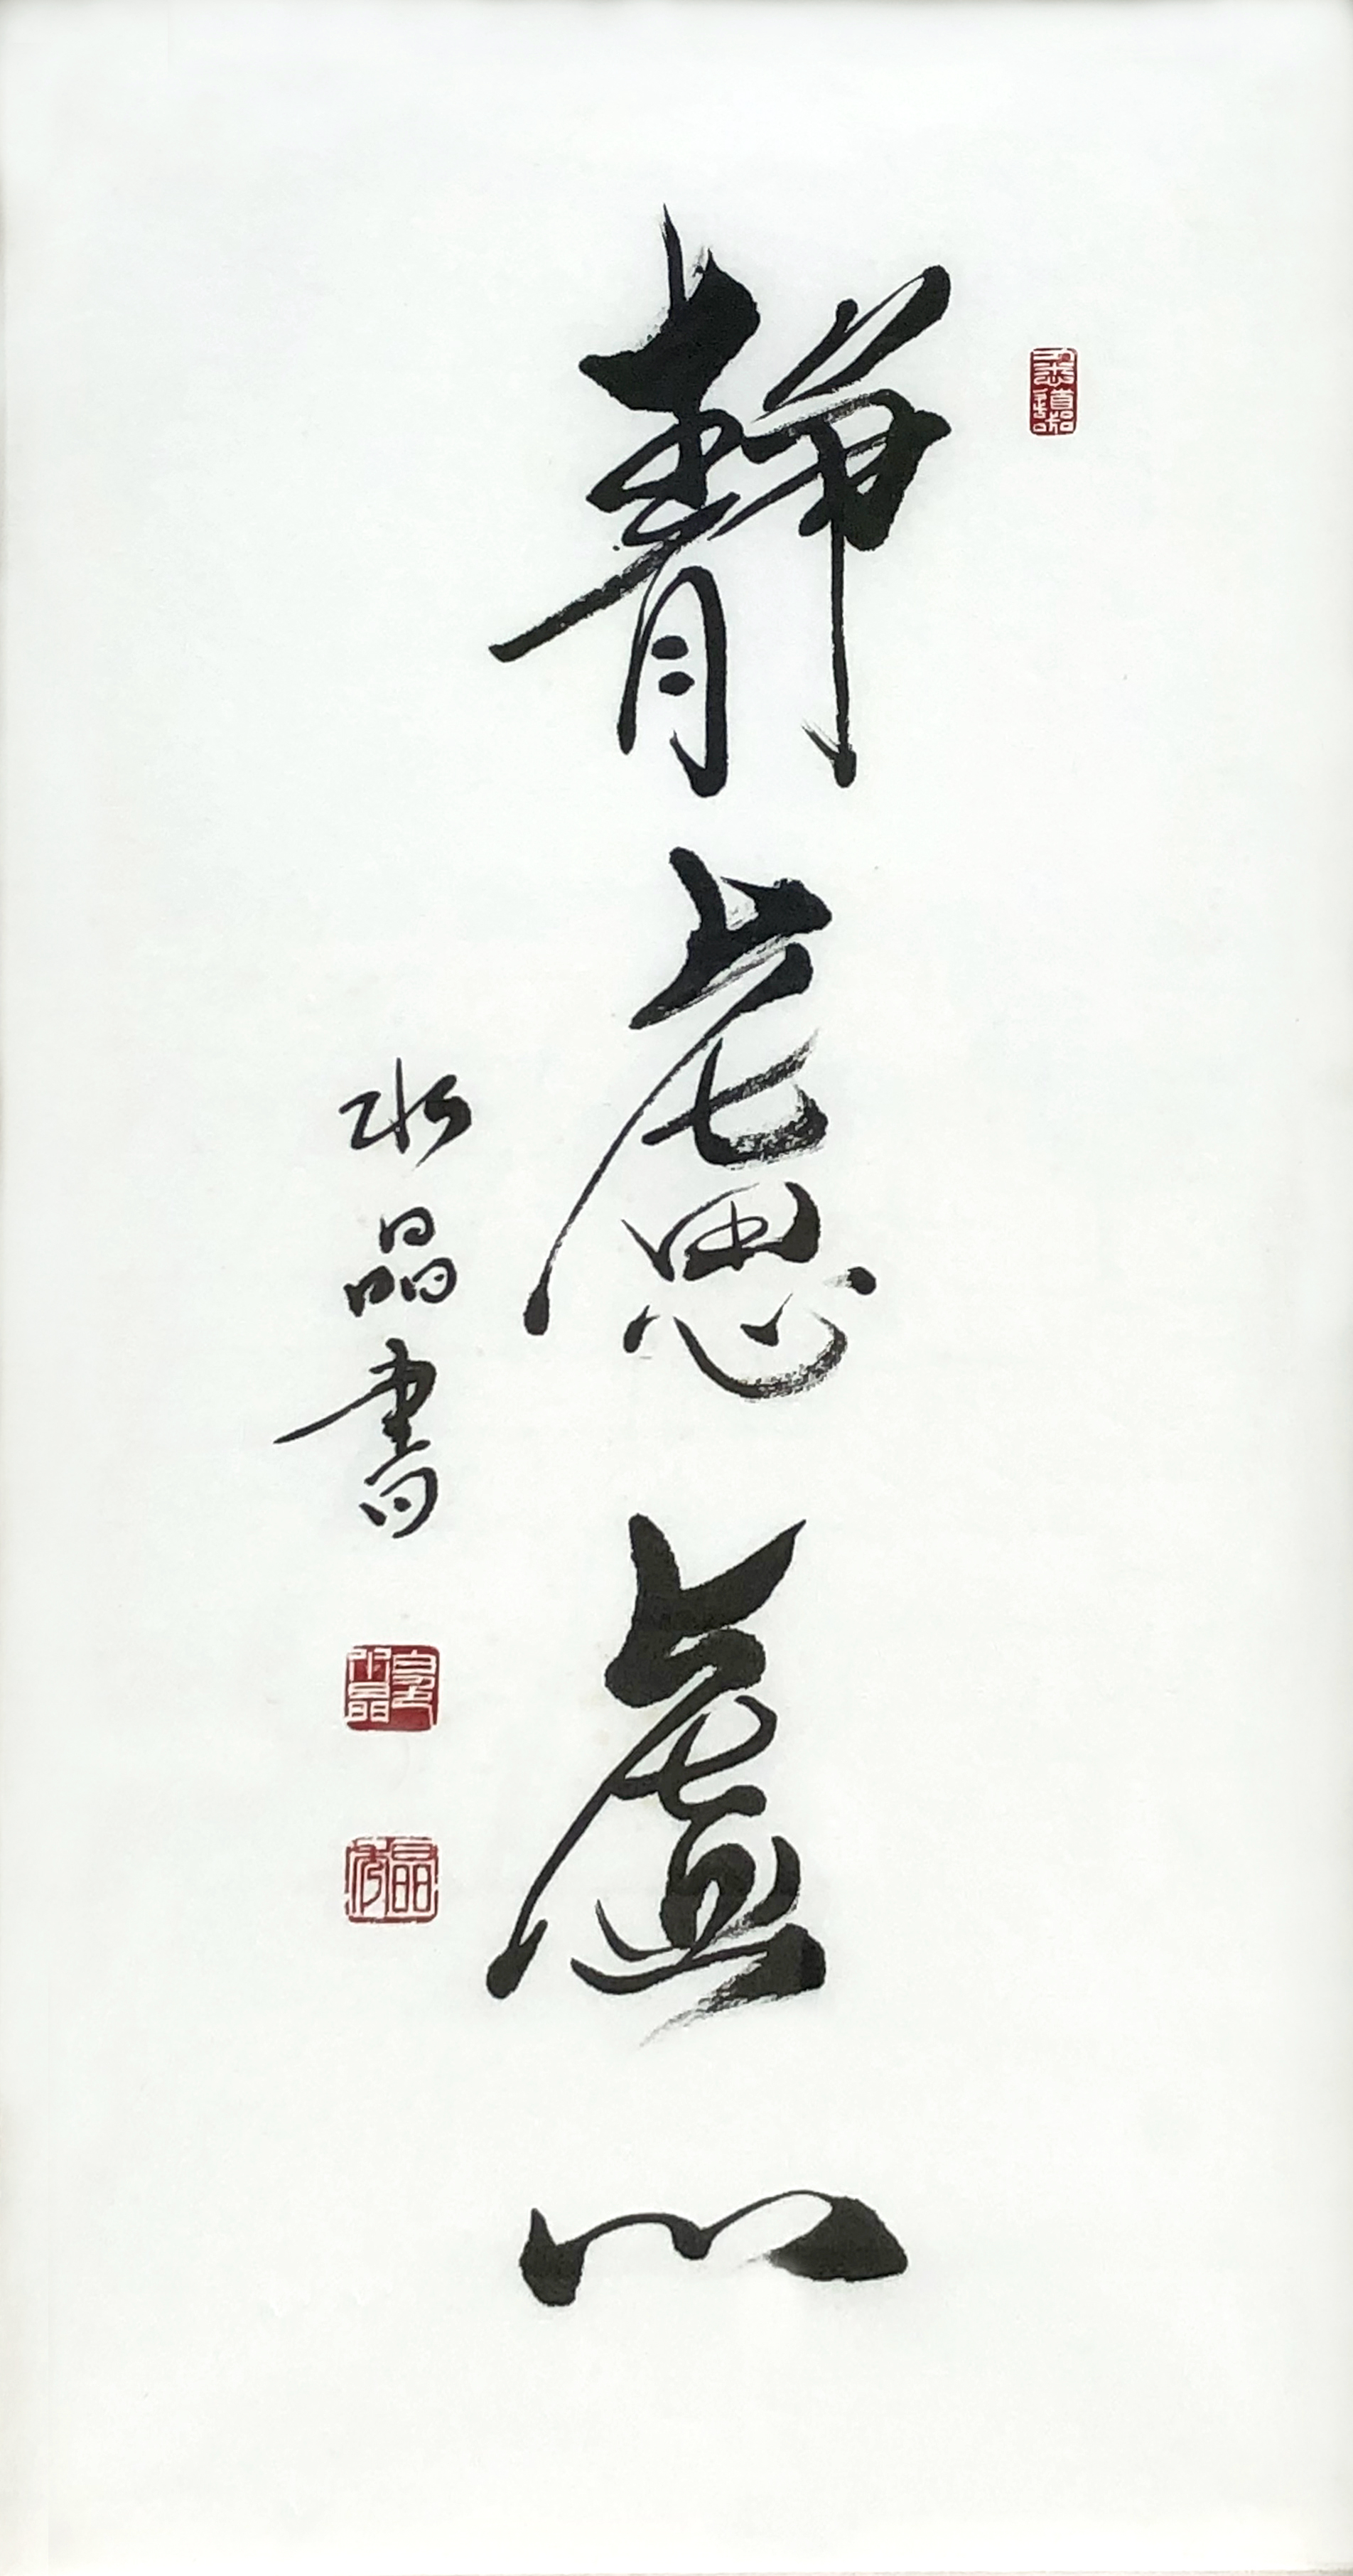 靜慮虛心
水晶書